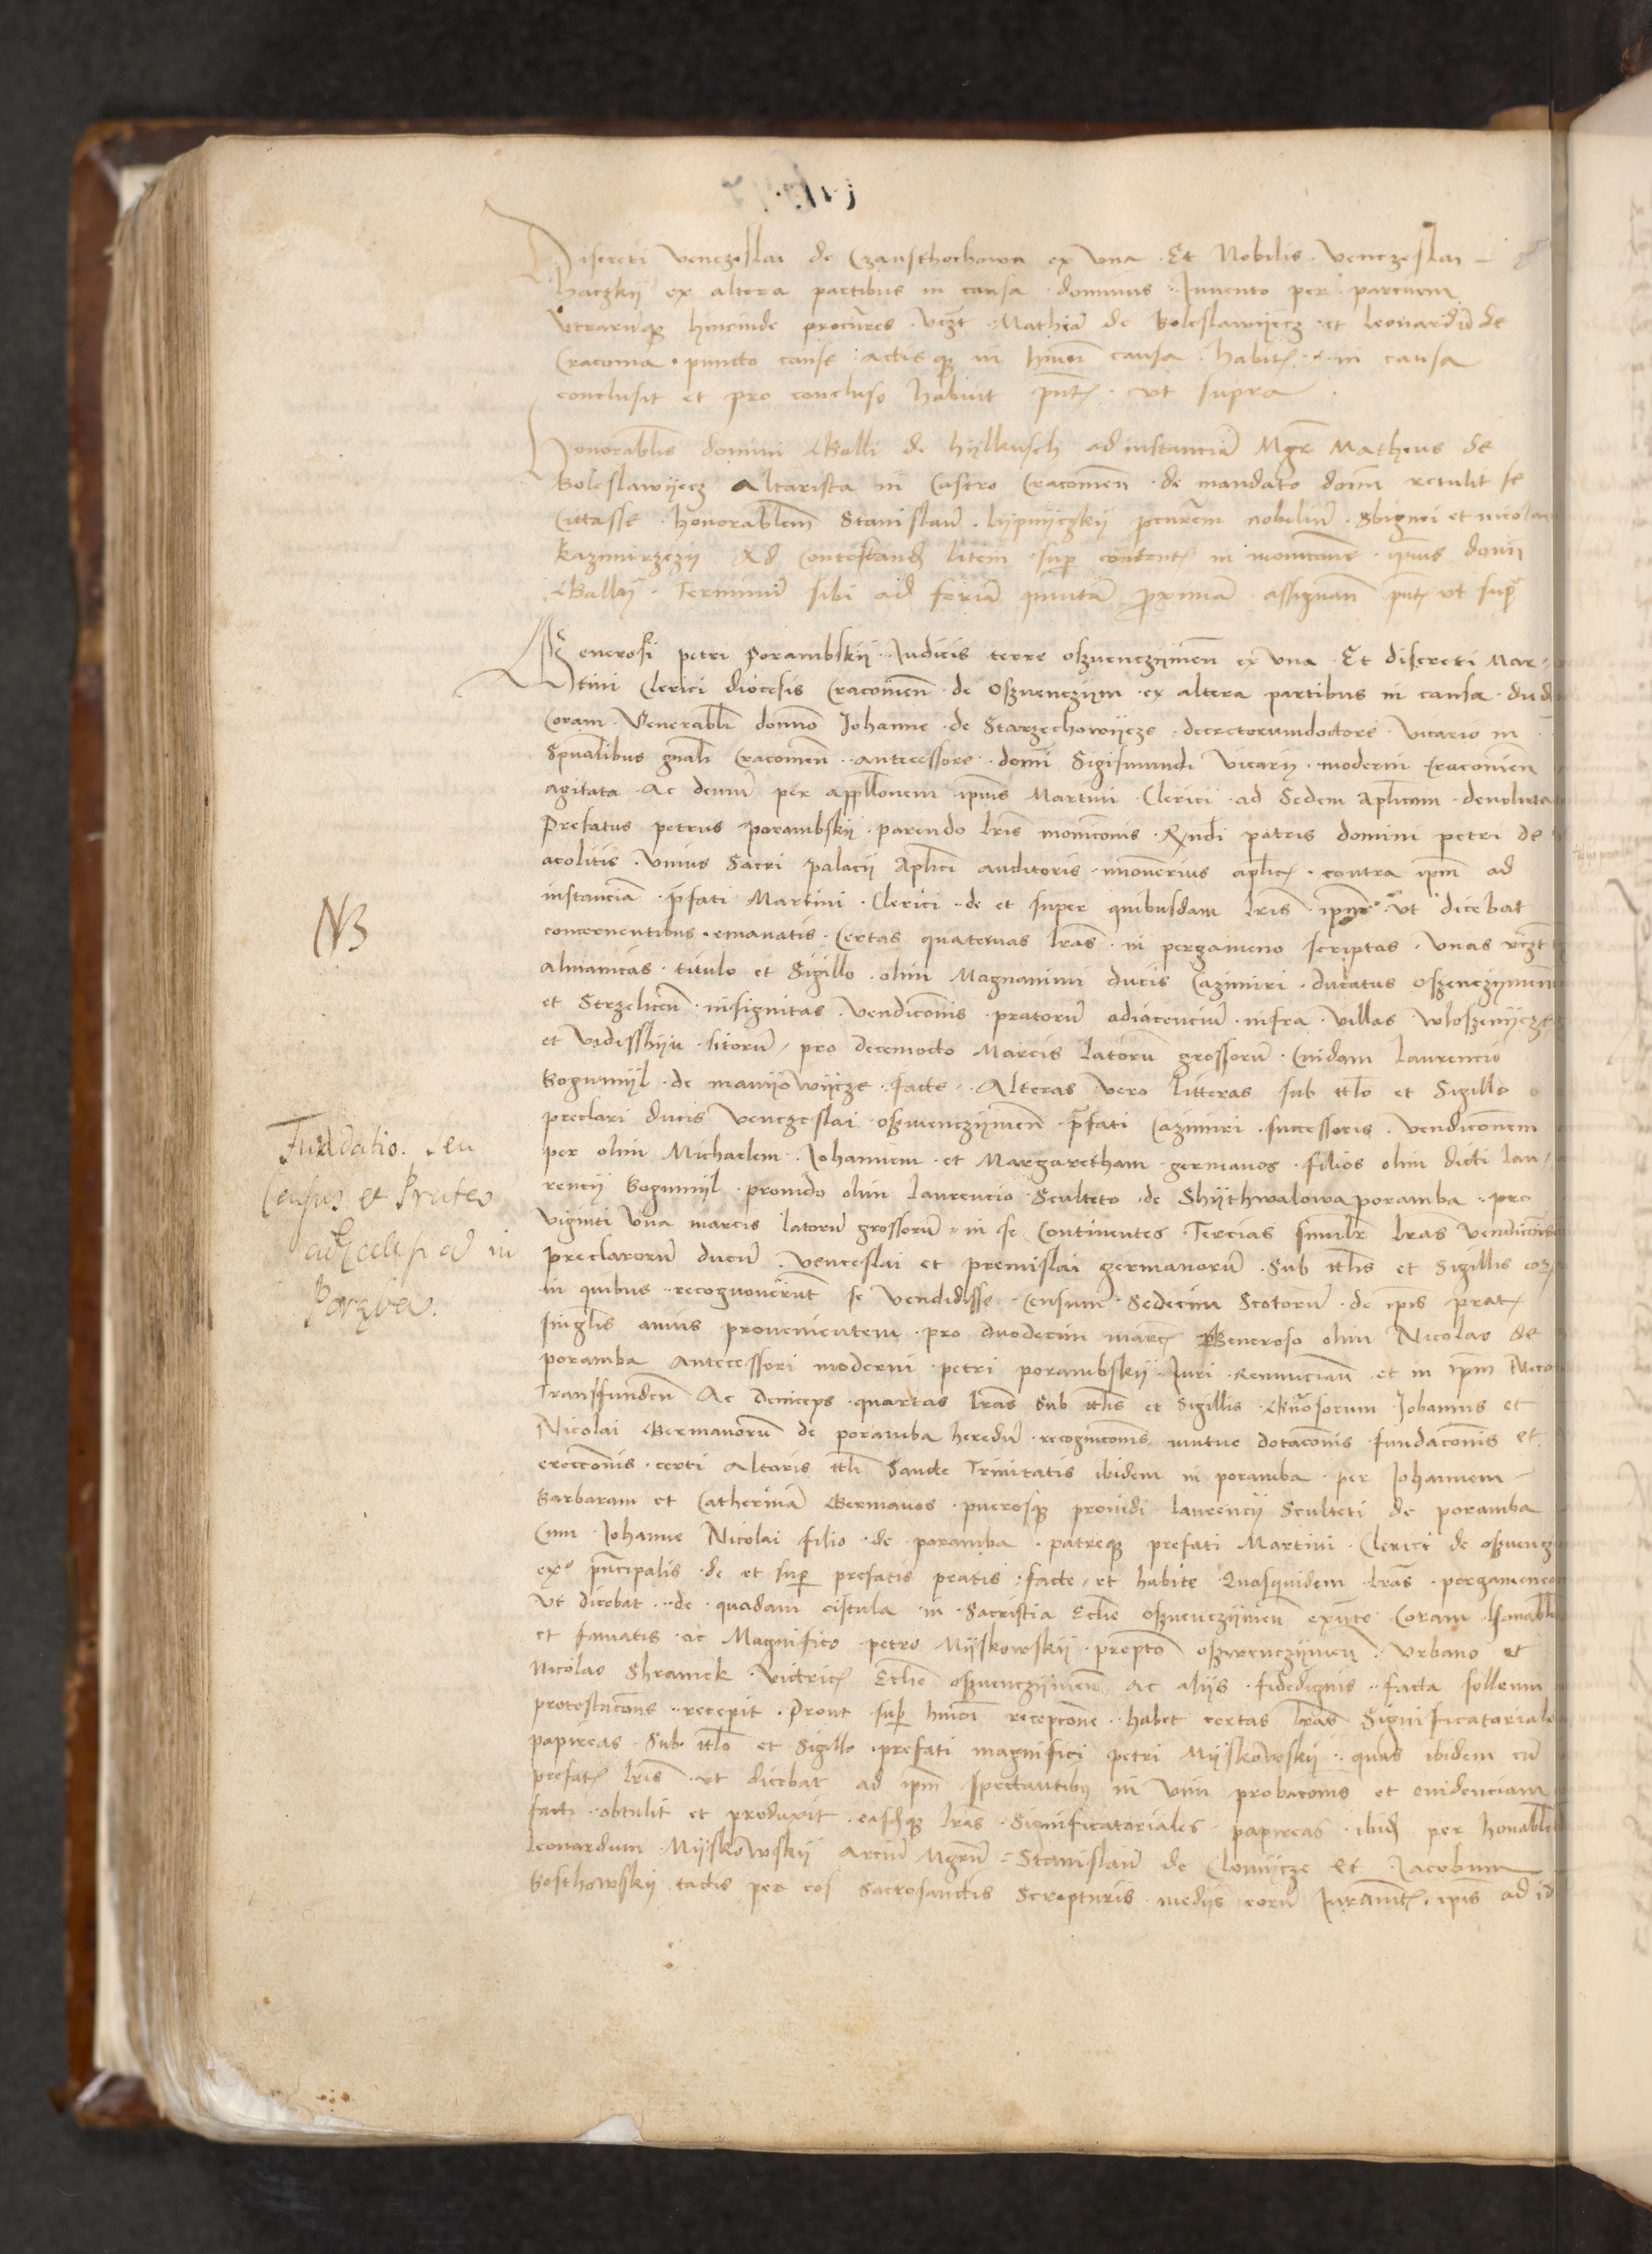 Discreti Venczeslai de Czansthochowa ex una Et Nobilis Venczeslai
haczkij ex altera partibus in causa dominus Invento per parcium
utrarumqꝫ hincinde procures vcꝫt Mathiā de Boleslawijecz et Leonardū de
Cracovia puncto cause actis qꝫ in hmōi causa habitꝫ in causa
conclusit et pro concluso habuit pntꝫ ut supra
Honorablis domini Galli de hijlkusch ad instanciā Mgr Matheus de
Boleslawijecz Altarista in Castro Cracovien de mandato domi retulit se
Cittasse honorablem Stanislaū Lijpnijczkij pcurem nobiliū Sbignei et nicolai
Kazimirzczij Ad Contestandꝫ litem sup contentꝫ in monicone ipius domi
Gallij Terminū sibi ad feriā quintā proximā assignan pntꝫ ut supra
Generosi petri Porambskij Iudicis terre oszvenczijmen ex una Et discreti Mar
tini Clerici diocesis Cracovien de Oszvenczijm ex altera partibus in causa dud
Coram Venerabli domno Johanne de Starzechowijcze decretorumdoctore Vicario in
Spualibus gnali Cracovien antecessore domi Sigismundi Vicarij moderni Cracovien
agitata Ac demū per appllonem ipius Martini Clerici ad Sedem Aplicam devoluta
Prefatus petrus porambskij parendo lris moniconis Rndi patris domini petri de
acolitis Unius Sacri Palacii Aplici auditoris contra ipm ad
instanciā pfati Martini Clerici de et super quibusdam lris ipm ut dicebat
concernentibus emanatis Certas quaternas lras in pergameno scriptas Unas vcꝫt
almanicas titulo et Sigillo olim Magnanimi ducis Cazimiri ducatus Oszvenczijmen
et Strzelicen insignitas Vendiconis pratorū adiacenciū infra Villas Wloszenijcze
et Vidisshijn sitorū pro decemocto Marcis latorū grossorū Cuidam Laurencio
Bogumijl de manijowijcze facte Alteras Vero litteras sub ttlo et Sigillo
preclari ducis Venczeslai oszvenczijmen pfati Cazimiri successoris Vendiconem
per olim Michaelem Johannem et Margaretham germanos filios olim dicti Lau
rencij Bogumijl provido olim Laurencio Sculteto de Shijthwalowa poramba pro
Viginti una marcis latorū grossorū in se Continentes Tercias similr lras Vendiconis
preclarorū ducū Venceslai et premislai germanorū Sub ttlis et Sigillis eoꝫ
in quibus recognoverunt se Vendidisse Censum Sedecim Scotorū de ipis pratꝫ
singlis annis provenientem pro duodecim marcꝫ Generoso olim Nicolao de
poramba Antecessori moderni petri porambskij Iuri Renuncian et in ipm Nico
Transfunden Ac deniceps quartas lras Sub ttlis et Sigillis Gnosorum Johannis et
Nicolai Germanorū de poramba heredū recogniconis mutue dotaconis fundaconis et
erecconis certi Altaris ttli Sancte Trinitatis ibidem in poramba per Johannem
Barbaram et Catherinā Germanos puerosqꝫ providi Laurencij Sculteti de poramba
Cum Johanne Nicolai filio de poramba patreqꝫ prefati Martini Clerici de oszvenczi
exo pncipalis de et sup prefatis pratis facte et habite Quasquidem lras pergameneas
Ut dicebat de quadam cistula in Sacristia Eccie oszvenczijmen exnte Coram honabli
et famatis ac Magnifico petro Mijskowskij prepto oszwenczijmen Urbano et
Nicolao Shramek vitricꝫ Eccie oszvenczijmen ac alijs fidedignis facta sollenni
protestacone recepit Prout sup hmōi recepcone habet certas lras Significatoriale
papireas Sub ttlo et Sigillo prefati magnifici petri Mijskowskij quas ibidem cū
prefatꝫ lris ut dicebat ad ipm spectantibꝫ in Vim probaconis et evidenciam
facti obtulit et produxit easqꝫ lras Significatoriales papireas ibidꝫ per honable
Leonardum Mijskowskij Arciū Mgrū Stanislaū de Clomijcze et Jacobum
Gosthowskij tactis per eos Sacrosanctis Scripturis medijs eorū Iuramētꝫ ipis ad id
NB
Fundatio seu
Census et Prates
ad Eccles. in
Poręba.